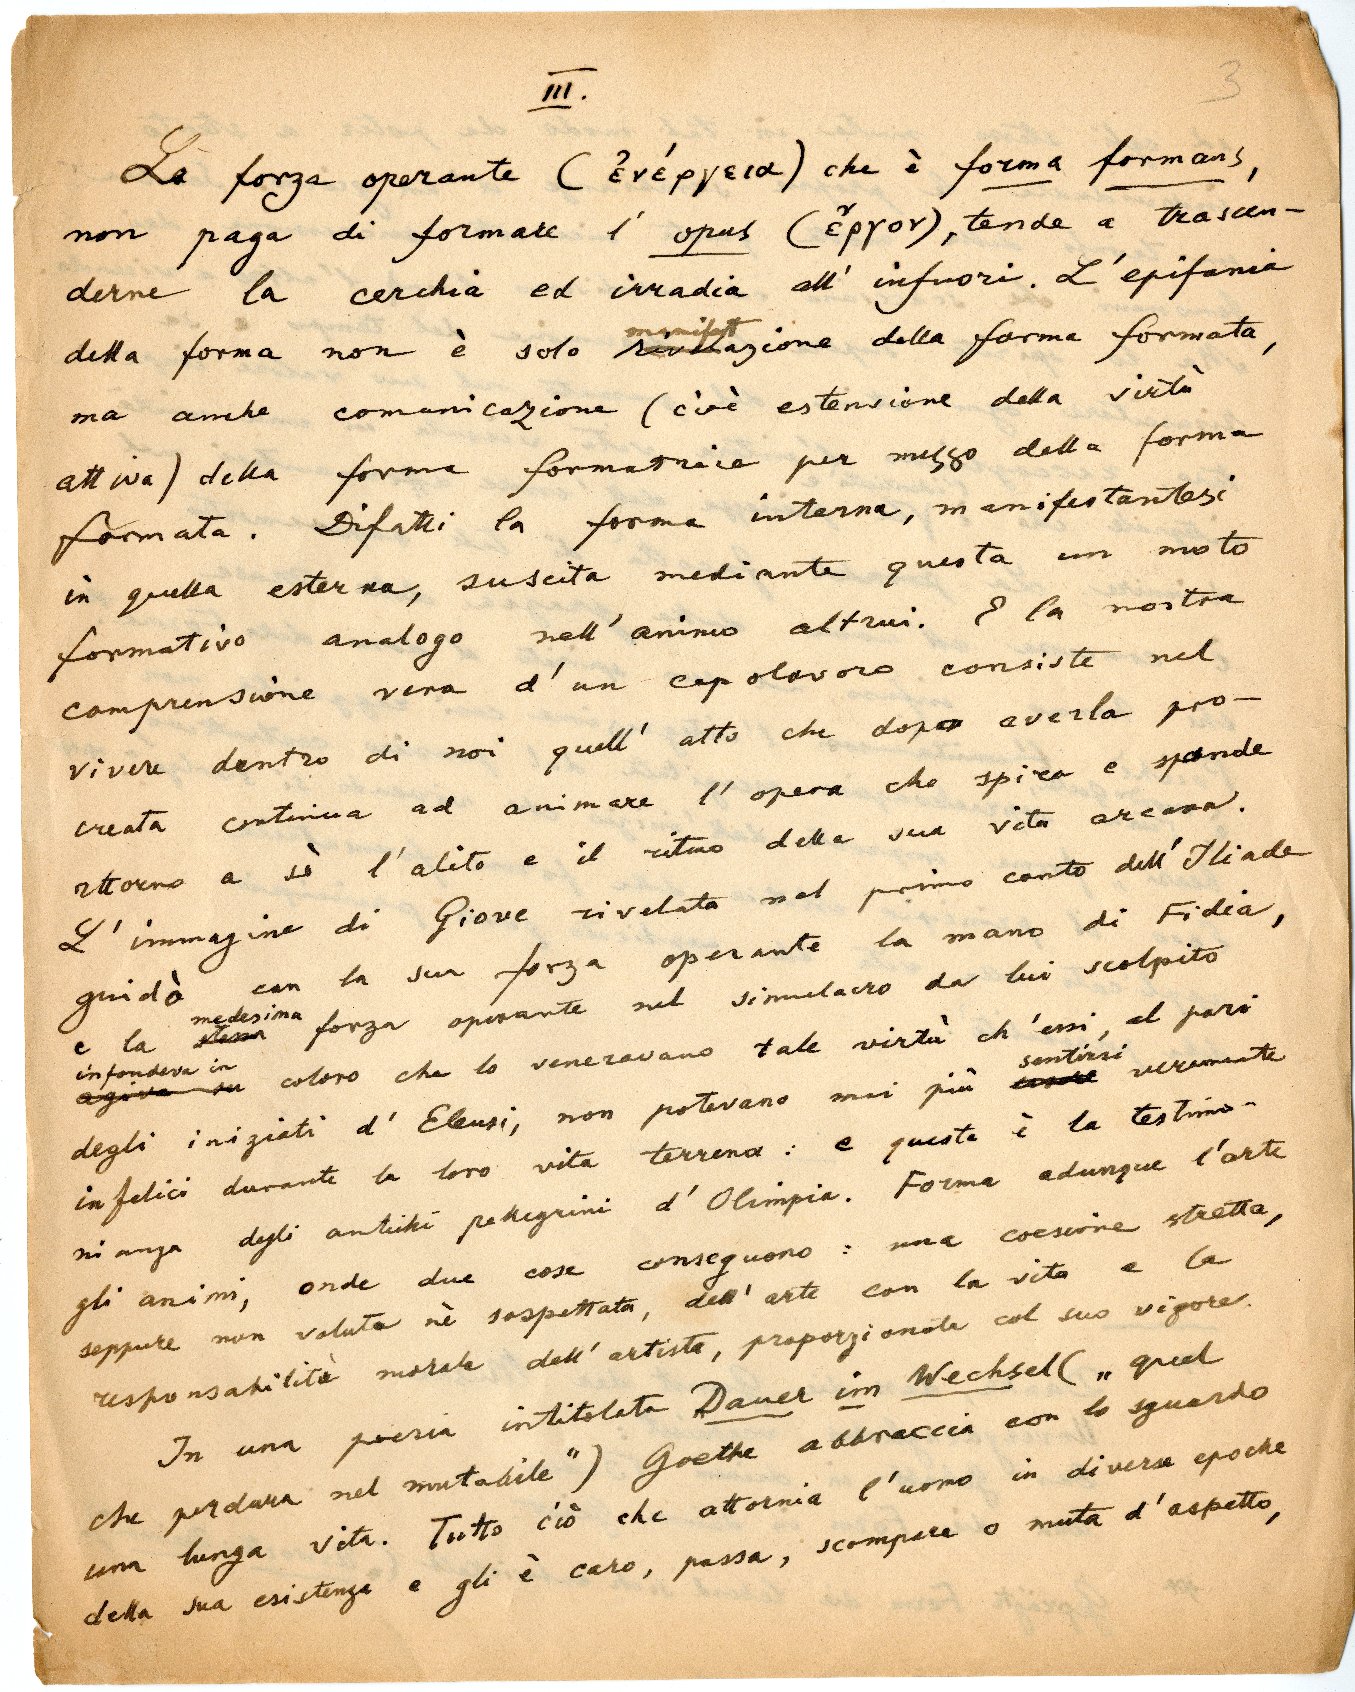 3
III.
La forza operante (ἐνέργεια) che è forma formans,
non paga di formare l'opus (ἔργον), tende a trascen-
derne la cerchia ed irradia all'infuori. L'epifania
manifest
della forma non è solo rivelazione della forma formata,
ma anche comunicazione (cioè estensione della virtù
attiva) della forma formatrice per mezzo della forma
formata. Difatti la forma interna, manifestantesi
in quella esterna, suscita mediante questa un moto
formativo analogo nell'animo altrui. E la nostra
comprensione vera d'un capolavoro consiste nel
vivere dentro di noi quell'atto che dopo averla pro-
creata continua ad animare l'opera che spira e spande
attorno a sè l'alito e il ritmo della sua vita arcana.
L'immagine di Giove rivelata nel primo canto dell'Iliade
guidò con la sua forza operante la mano di Fidia,
medesima
e la stessa forza operante nel simulacro da lui scolpito
infondeva in
agiva su coloro che lo veneravano tale virtù ch'essi, al pari
sentirsi
degli iniziati d'Eleusi, non potevano mai più essere veramente
infelici durante la loro vita terrena: e questa è la testimo-
nianza degli antichi pellegrini d'Olimpia. Forma adunque l'arte
gli animi, onde due cose conseguono: una coesione stretta,
seppure non voluta nè sospettata, dell'arte con la vita e la
responsabilità morale dell'artista, proporzionata col suo vigore.
In una poesia intitolata Dauer im Wechsel („quel
che perdura nel mutabile") Goethe abbraccia con lo sguardo
una lunga vita. Tutto ciò che attornia l'uomo in diverse epoche
della sua esistenza e gli è caro, passa, scompare o muta d'aspetto,